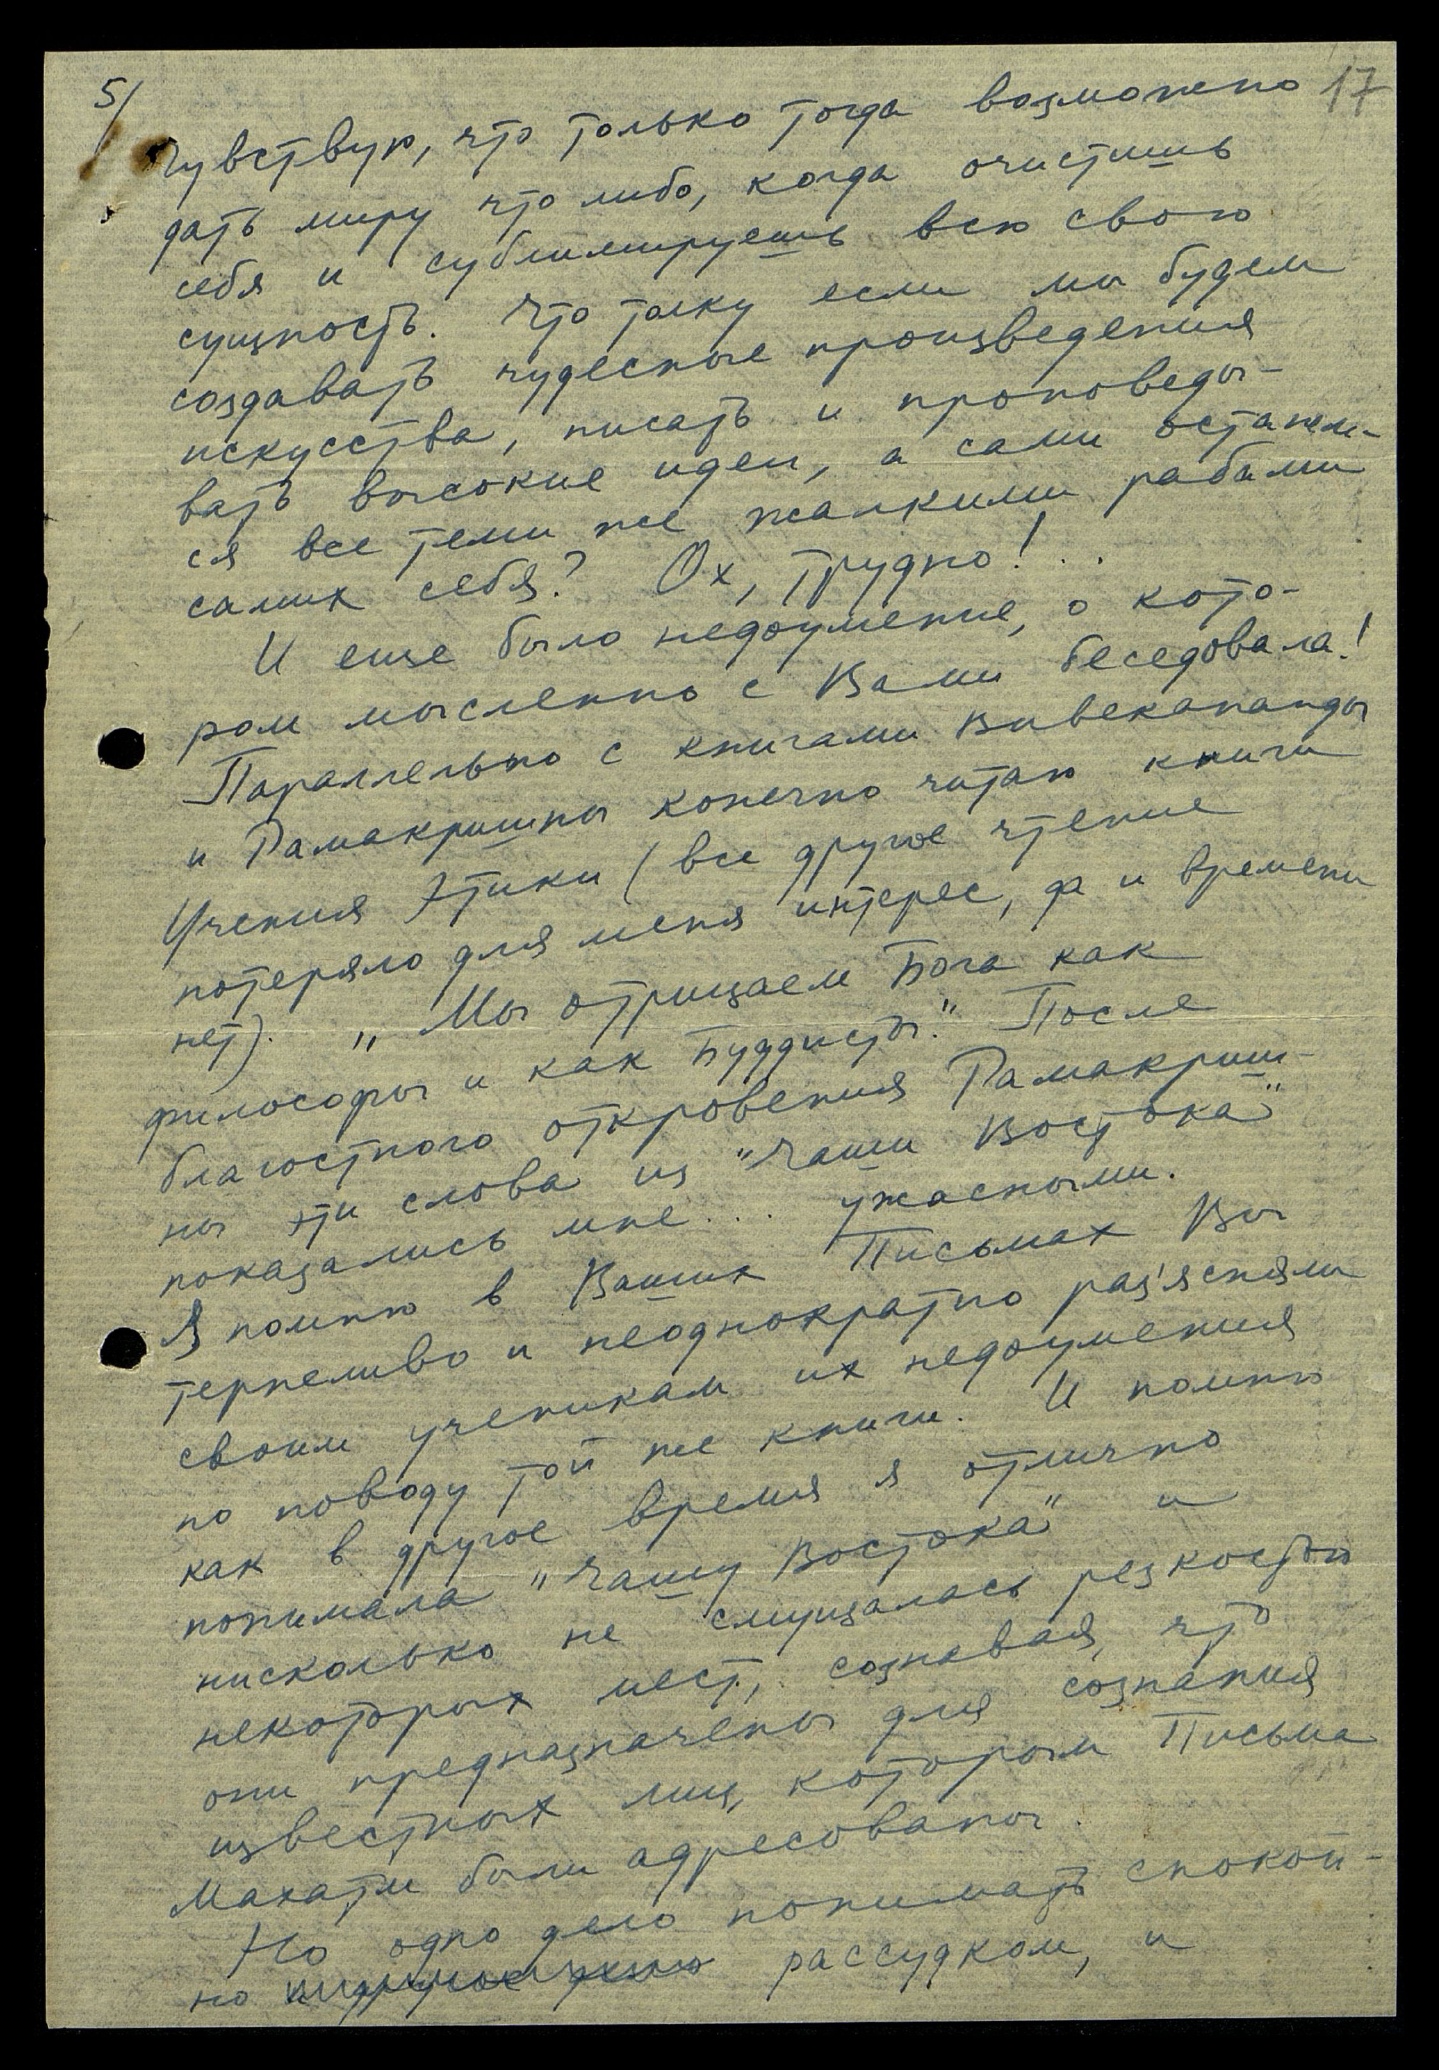 5/
17
Чувствую, что только тогда возможно
дать миру что либо, когда очистишь
себя и сублимируешь всю свою
сущность. Что толку если мы будем
создавать чудесные произведения
искусства, писать и проповеды-
вать высокие идеи, а сами останем-
ся все теми же жалкими рабами
самих себя? Ох, трудно!..
И еще было недоумение, о кото-
ром мысленно с Вами беседовала!
Параллельно с книгами Вивекананды
и Рамакришны конечно читаю книги
Учения Этики (все другое чтение
потеряло для меня интерес, да и времени
нет). „Мы отрицаем Бога как
философы и как Буддисты." После
благостного откровения Рамакриш-
ны эти слова из "Чаши Востока"
показались мне... ужасными.
Я помню в Ваших Письмах Вы
терпеливо и неоднократно раз'ясняли
своим ученикам их недоумения
по поводу той же книги. И помню
как в другое время я отлично
понимала "Чашу Востока" и
нисколько не смущалась резкостью
некоторых мест, сознавая, что
они предназначены для сознания
известных лиц, которым Письма
Махатм были адресованы.
Но одно дело понимать спокой-
но рассудком, и